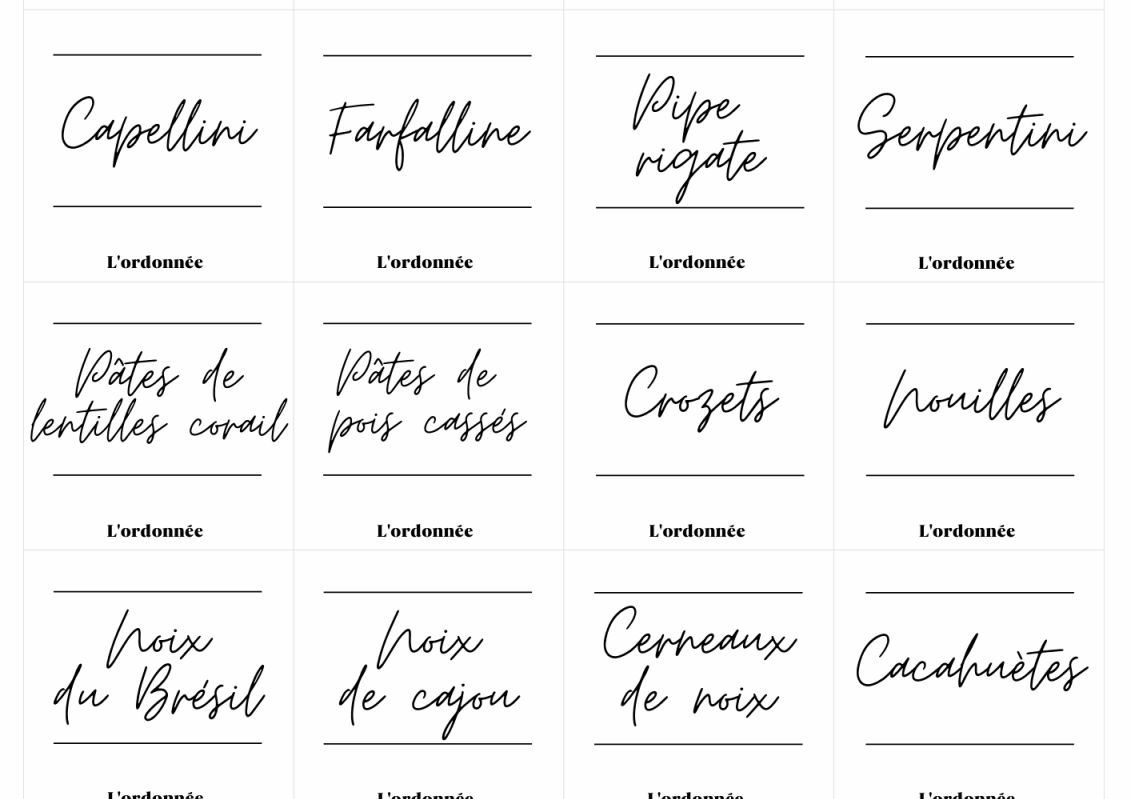 Capellini
Farfalline
Pipe
rigate
Serpentini
L'ordonnée
L'ordonnée
L'ordonnée
L'ordonnée
Pâtes de
lentilles corail
Pâtes de
pois cassés
Crozets
Nouilles
L'ordonnée
L'ordonnée
L'ordonnée
L'ordonnée
Noix
du Brésil
Noix
de cajou
Cerneaux
de noix
Cacahuètes
L'ordonnée
L'ordonnée
L'ordonnée
L'ordonnée